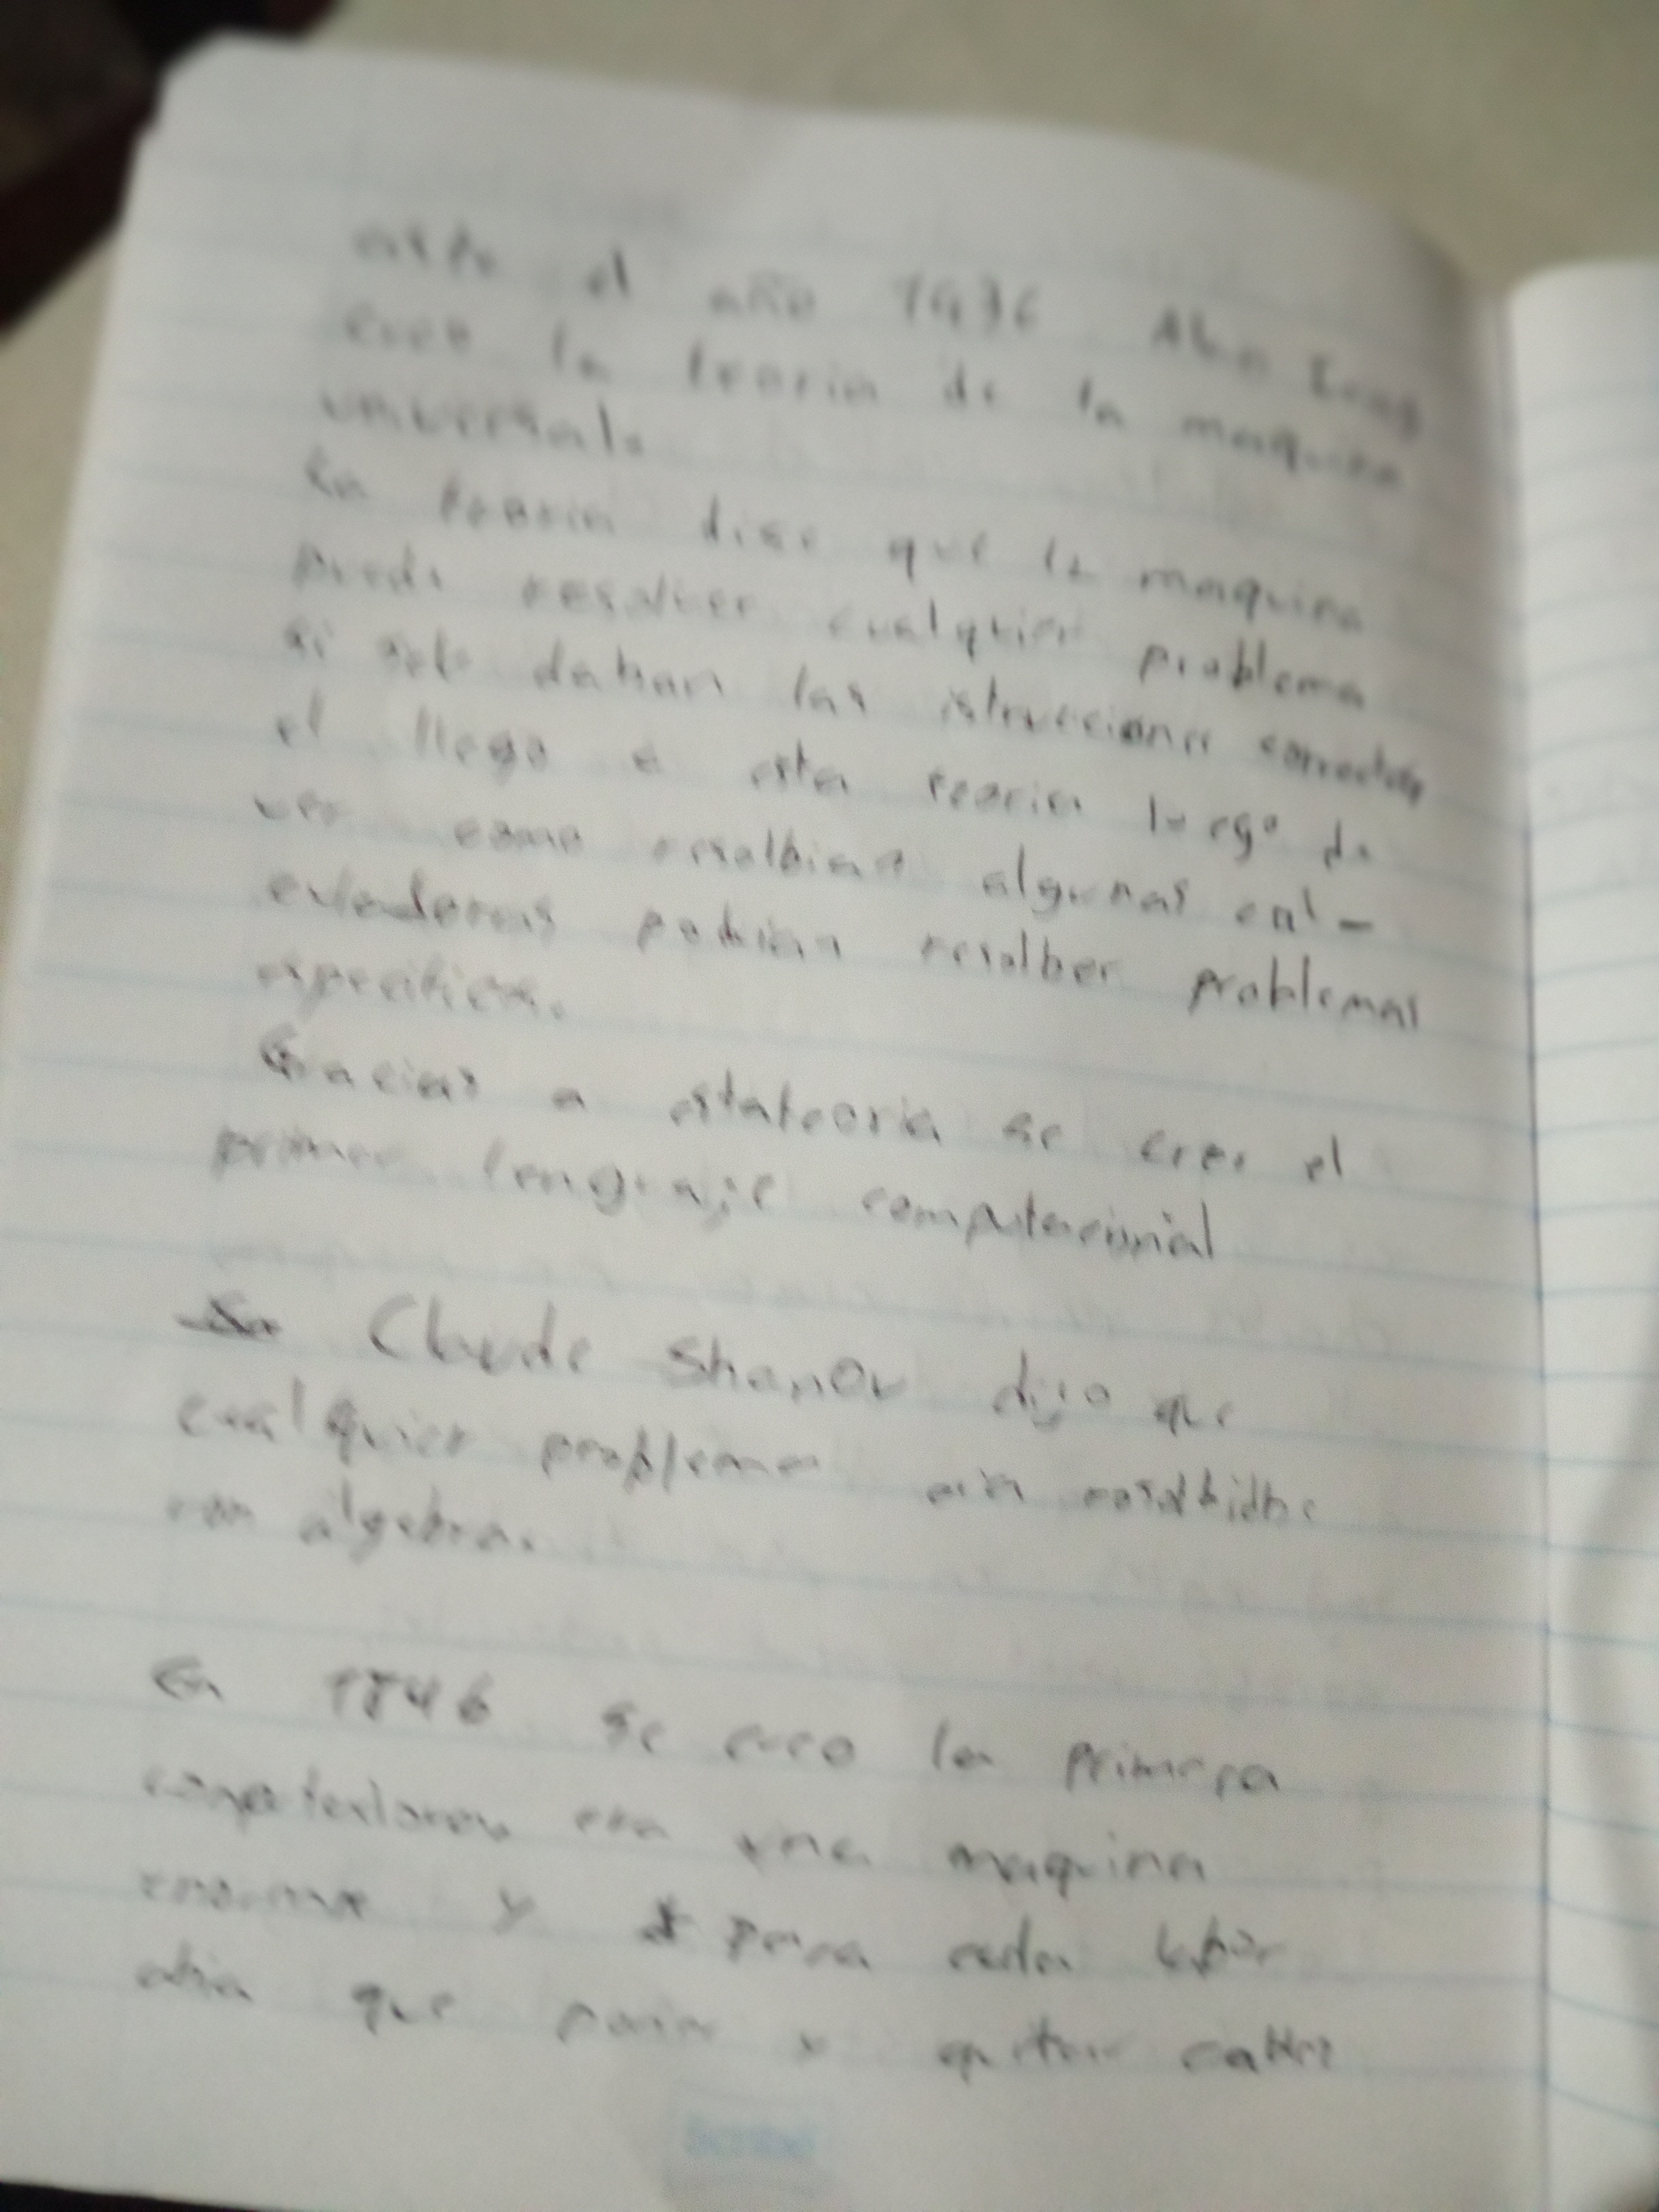 el año 1936 Alan
creo la teoria de la maquina
universal.
La teoria dise que la maquina
puede resolver cualquier problema
si se le daban las istrucciones correctas
el llego a esta teoria luego de
ver como resolbian algunas cal-
culadoras podian resolber problemas
especificos.
Gracias a estateoria se creo el
primer lenguaje computacional
Claude Shanon dijo que
cualquier problema
con algebra.
En 1846 se creo la primera
era una maquina
enorme y para cada labor
abia que poner y quitar cables
Scribe